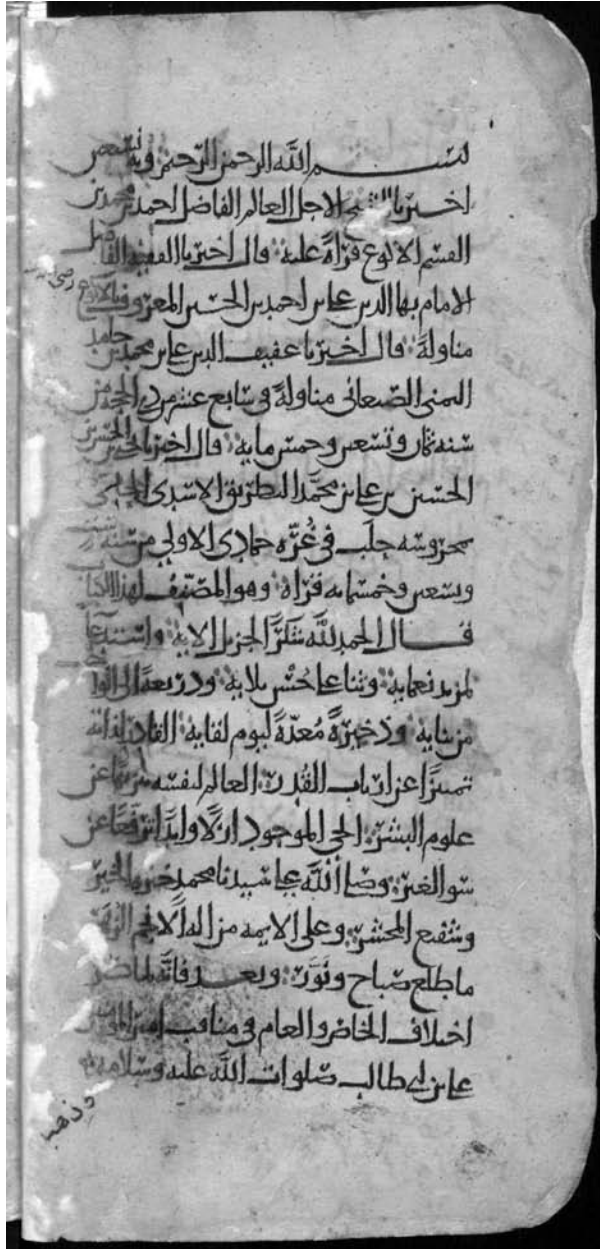 بسم الله الرحمن الرحيم وبه نستعين
اخبرنا الشيخ الاجل العالم الفاضل احمد بن محمد بن
القسم الاكوع قراة عليه قال اخبرنا الفقيه الفاضل
الامام بها الدين علي بن احمد بن الحسين المعروف بالاكوع
مناولة قال اخبرنا عفيف الدين علي بن محمد بن حامد
اليمني الصنعاني مناولة في سابع عشر من ذي الحجة من
سنه ثمان وتسعين وخمس مايه قال اخبرنا يحيى بن الحسن بن
الحسين بن علي بن محمد البطريق الاسدي الحلي
بمحروسه حلب في غره جمادى الاولى من سنه
وتسعين وخمسمايه قراة وهو المصنف لهذا الكتاب
قال الحمد لله شكرا لجزيل الايه واستدعا
لمزيد نعمايه وثنا على حسن بلايه
وذخيرة معدة ليوم لقايه القادر لذاته
تميزا عن ارباب القدر العالم لنفسه عن
علوم البشر الحي الموجود ازلا وابدا ترفعا عن
سو الغير وصلى الله على سيدنا محمد خيرة الخير
وشفيع المحشر وعلى الايمه من اله الانجم الزهر
ما طلع صباح ونور وبعد فانه لما
اختلاف الخاص والعام في مناقب امير المومنين
علي بن ابي طالب صلوات الله عليه وسلامه
وذهب